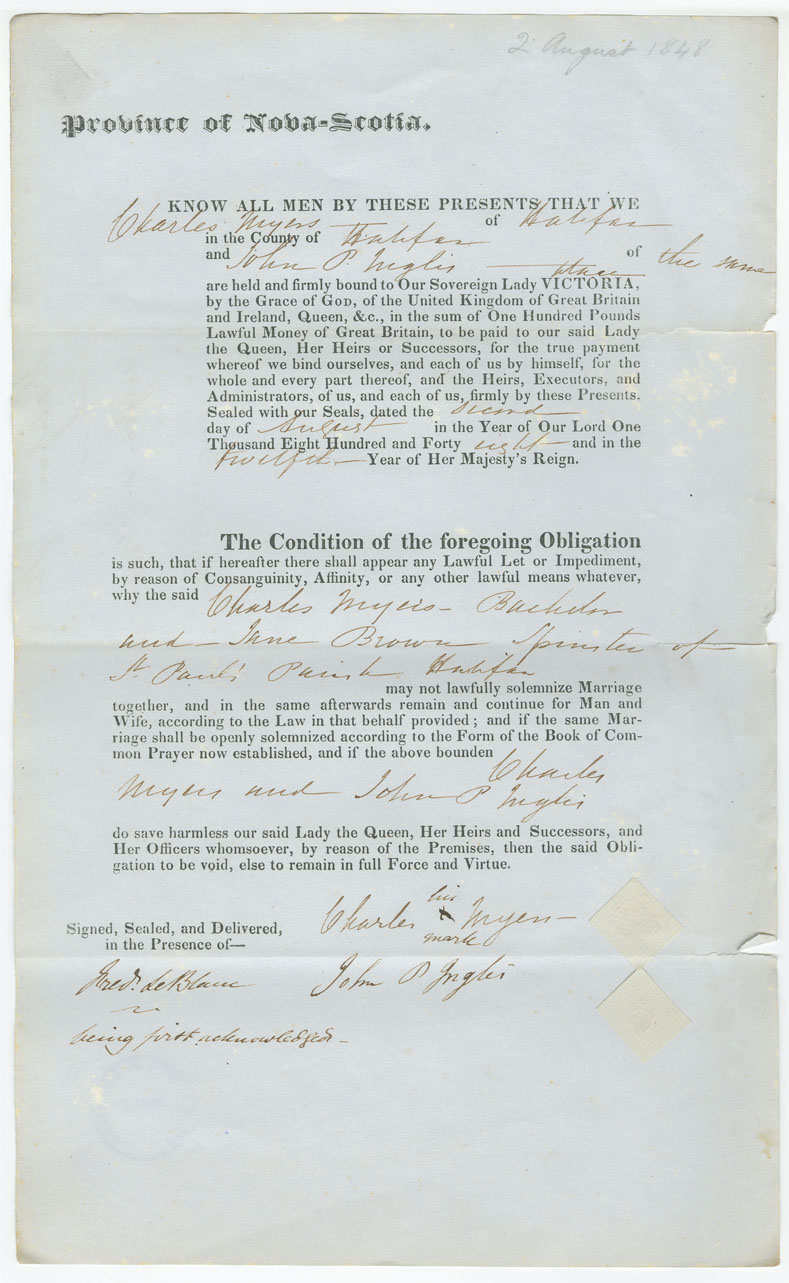 2 August 1848
Province of Nova-Scotia.
KNOW ALL MEN BY THESE PRESENTS THAT WE
Charles Myers of Halifax
in the County of Halifax
and John P. Inglis of the same
place
are held and firmly bound to Our Sovereign Lady VICTORIA,
by the Grace of GOD, of the United Kingdom of Great Britain
and Ireland, Queen, &c., in the sum of One Hundred Pounds
Lawful Money of Great Britain, to be paid to our said Lady
the Queen, Her Heirs or Successors, for the true payment
whereof we bind ourselves, and each of us by himself, for the
whole and every part thereof, and the Heirs, Executors, and
Administrators, of us, and each of us, firmly by these Presents.
Sealed with our Seals, dated the Second
day of August in the Year of Our Lord One
Thousand Eight Hundred and Forty eight and in the
twelfth Year of Her Majesty's Reign.
The Condition of the foregoing Obligation
is such, that if hereafter there shall appear any Lawful Let or Impediment,
by reason of Consanguinity, Affinity, or any other lawful means whatever,
why the said Charles Myers - Bachelor
and - Jane Brown Spinster of -
St Paul's Parish Halifax
may not lawfully solemnize Marriage
together, and in the same afterwards remain and continue for Man and
Wife, according to the Law in that behalf provided; and if the same Mar-
riage shall be openly solemnized according to the Form of the Book of Com-
mon Prayer now established, and if the above bounden
Charles
Myers and John P Inglis
do save harmless our said Lady the Queen, Her Heirs and Successors, and
Her Officers whomsoever, by reason of the Premises, then the said Obli-
gation to be void, else to remain in full Force and Virtue.
his
Signed, Sealed, and Delivered, Charles x Myers -
in the Presence of— mark
Fredk. LeBlanc John P Inglis
being first acknowledged -